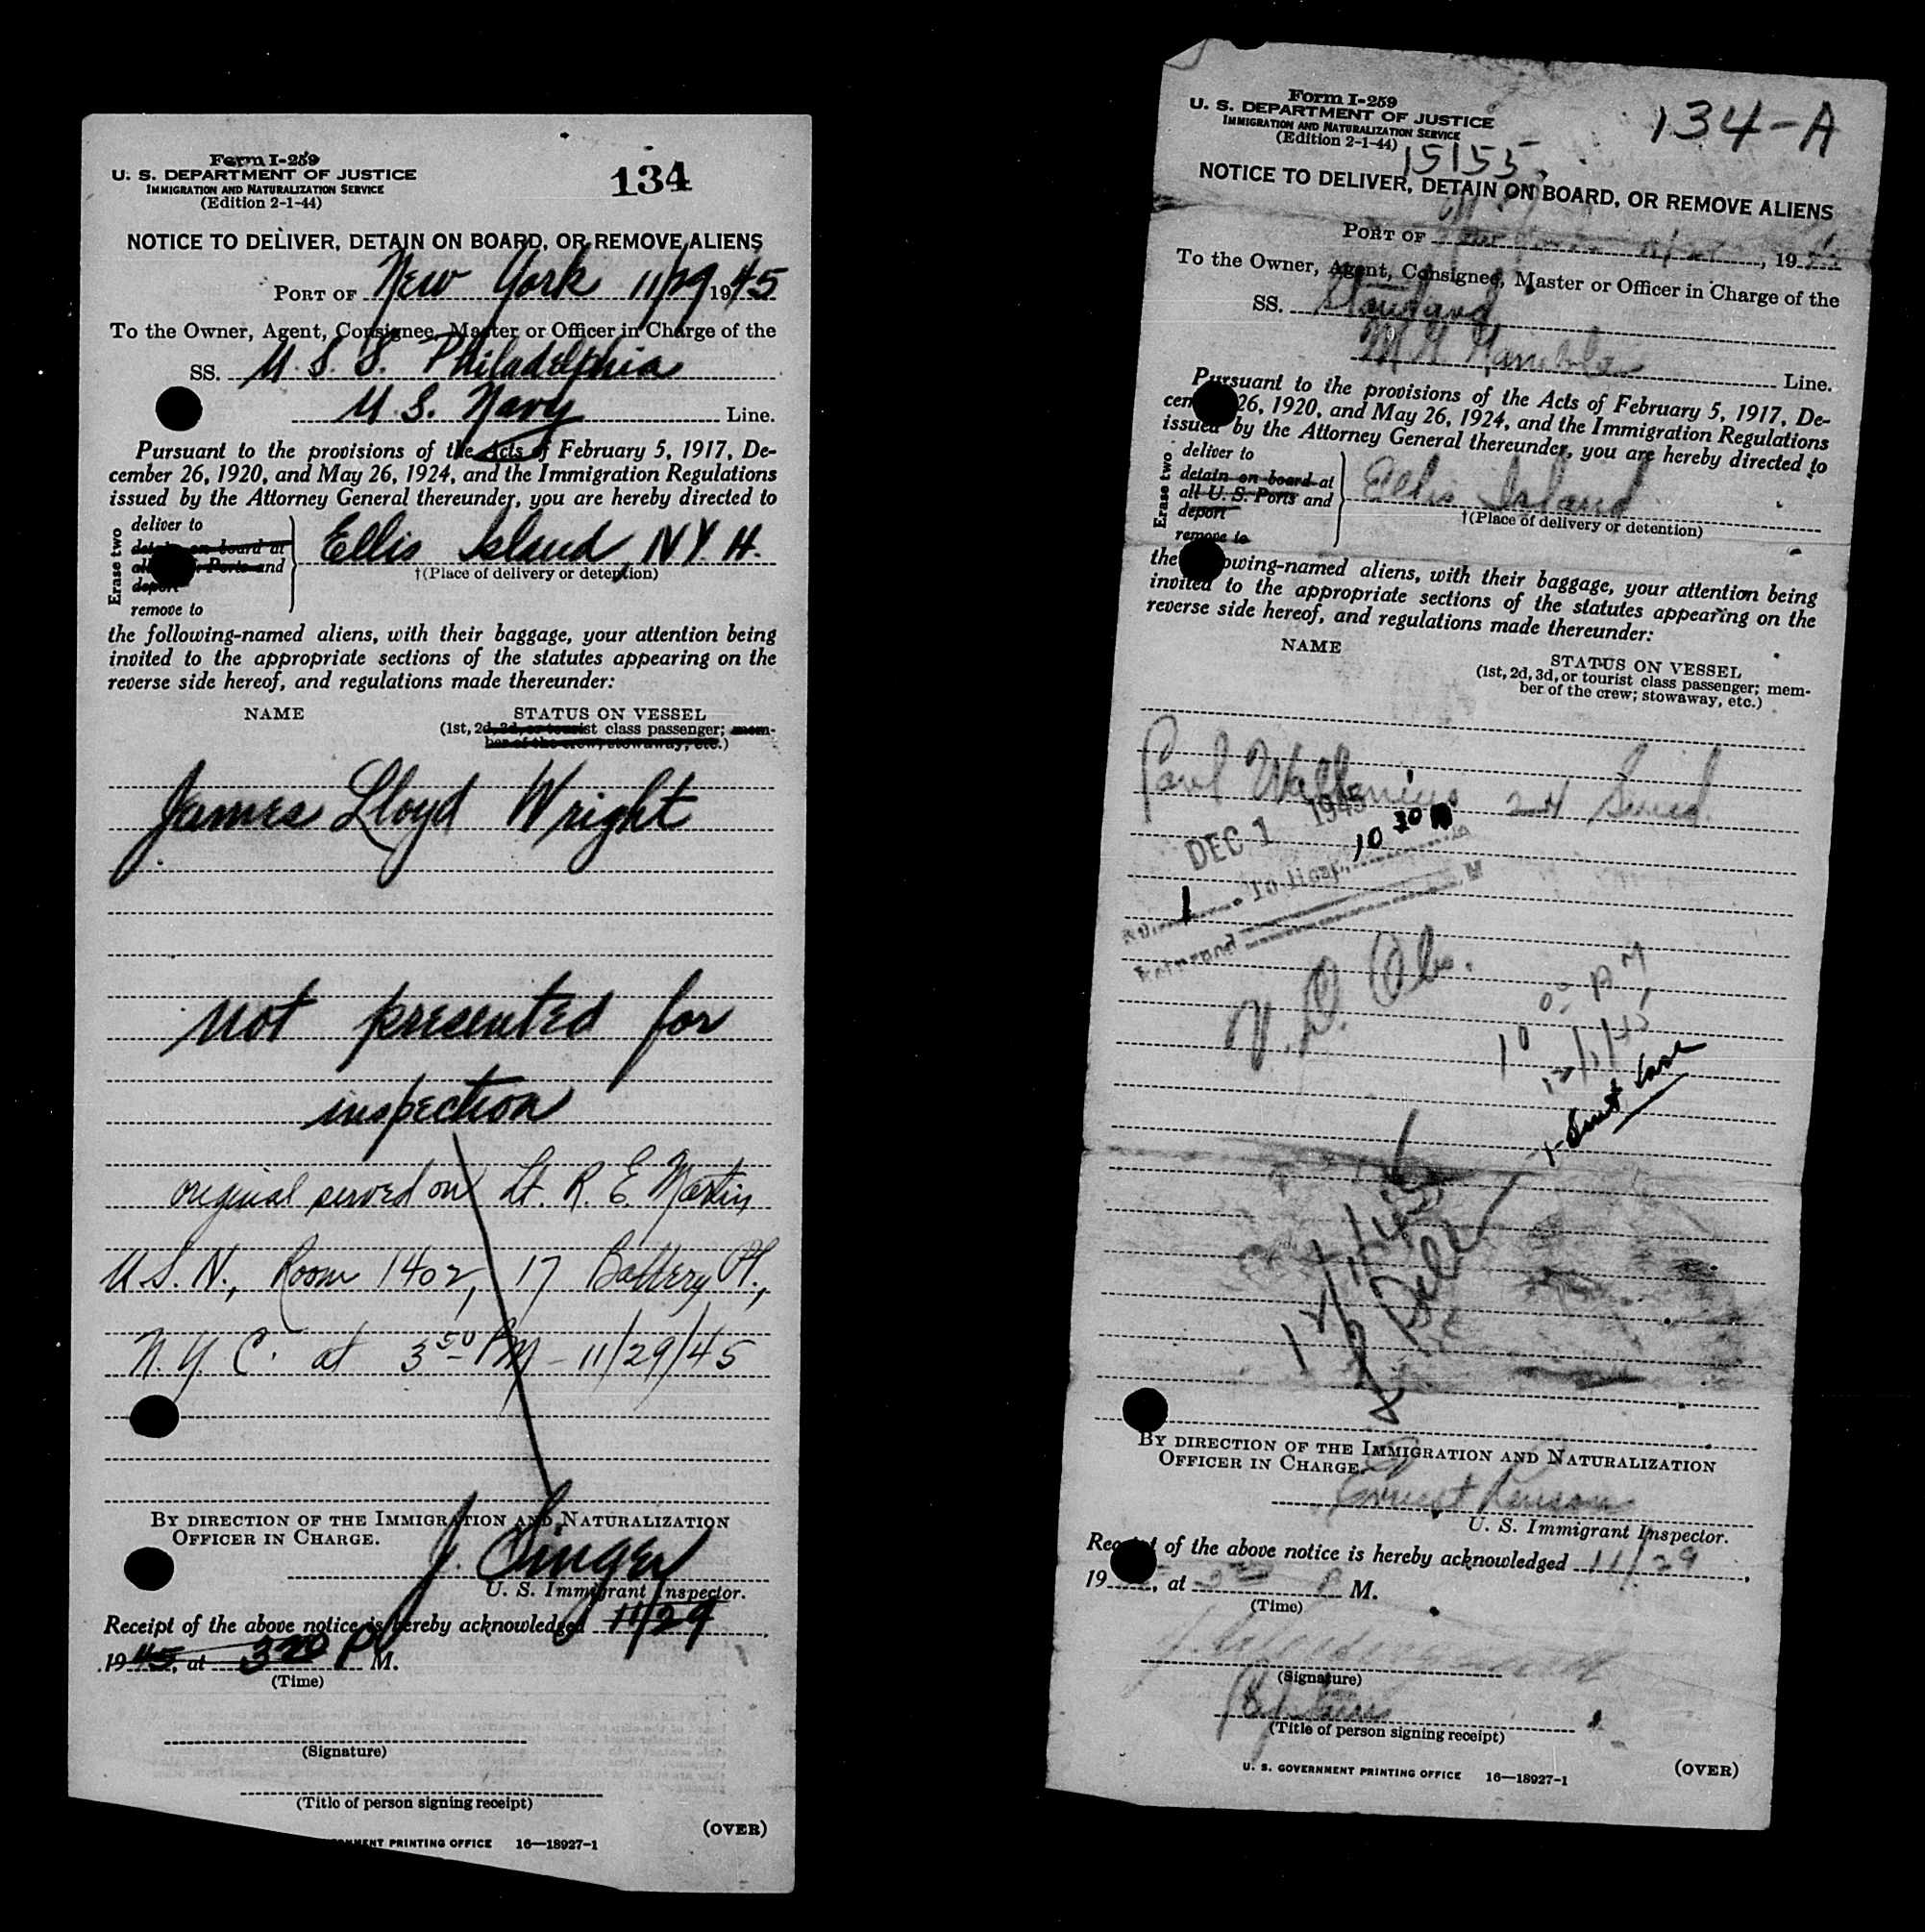 Form I-259
U. S. DEPARTMENT OF JUSTICE
IMMIGRATION AND NATURALIZATION SERVICE
(Edition 2-1-44)
134
NOTICE TO DELIVER, DETAIN ON BOARD, OR REMOVE ALIENS
PORT OF New York 11/29 1945
To the Owner, Agent, Consignee, Master or Officer in Charge of the
SS. U.S.S. Philadelphia
U.S. Navy Line.
Pursuant to the provisions of the Acts of February 5, 1917, De-
cember 26, 1920, and May 26, 1924, and the Immigration Regulations
issued by the Attorney General thereunder, you are hereby directed to
Erase two
deliver to
detain on board at
all U. S. Ports and
deport
remove to
Ellis Island, N.Y. H.
†(Place of delivery or detention)
the following-named aliens, with their baggage, your attention being
invited to the appropriate sections of the statutes appearing on the
reverse side hereof, and regulations made thereunder:
NAME STATUS ON VESSEL
(1st, 2d, 3d, or tourist class passenger; mem-
ber of the crew; stowaway, etc.)
James Lloyd Wright
not presented for
inspection
original served on Lt. R. E. Martin,
U.S.N., Room 1402, 17 Battery Pl.,
N.Y.C. at 3 50 PM - 11/29/45
BY DIRECTION OF THE IMMIGRATION AND NATURALIZATION
OFFICER IN CHARGE.
J. Singer
U. S. Immigrant Inspector.
Receipt of the above notice is hereby acknowledged 11/29
1945, at 3 20 P M.
(Time)
(Signature)
(Title of person signing receipt)
(OVER)
PRINTING OFFICE 16—18927-1
Form I-259
U. S. DEPARTMENT OF JUSTICE
IMMIGRATION AND NATURALIZATION SERVICE
(Edition 2-1-44)
134-A
15155
NOTICE TO DELIVER, DETAIN ON BOARD, OR REMOVE ALIENS
PORT OF New York 11/29, 1945
To the Owner, Agent, Consignee, Master or Officer in Charge of the
SS. Standard
Line.
Pursuant to the provisions of the Acts of February 5, 1917, De-
cember 26, 1920, and May 26, 1924, and the Immigration Regulations
issued by the Attorney General thereunder, you are hereby directed to
Erase two
deliver to
detain on board at
all U. S. Ports and
deport
remove to
Ellis Island
†(Place of delivery or detention)
the following-named aliens, with their baggage, your attention being
invited to the appropriate sections of the statutes appearing on the
reverse side hereof, and regulations made thereunder:
NAME STATUS ON VESSEL
(1st, 2d, 3d, or tourist class passenger; mem-
ber of the crew; stowaway, etc.)
24 Swed.
DEC 1 1945
10 30 A
No. 1 To Hosp. M
Returned
V.D. Obs.
10 00 A M
12/1/45
12/1/45
BY DIRECTION OF THE IMMIGRATION AND NATURALIZATION
OFFICER IN CHARGE.
U. S. Immigrant Inspector.
Receipt of the above notice is hereby acknowledged 11/29,
19, at P M.
(Time)
(Signature)
(Title of person signing receipt)
U. S. GOVERNMENT PRINTING OFFICE 16—18927-1
(OVER)